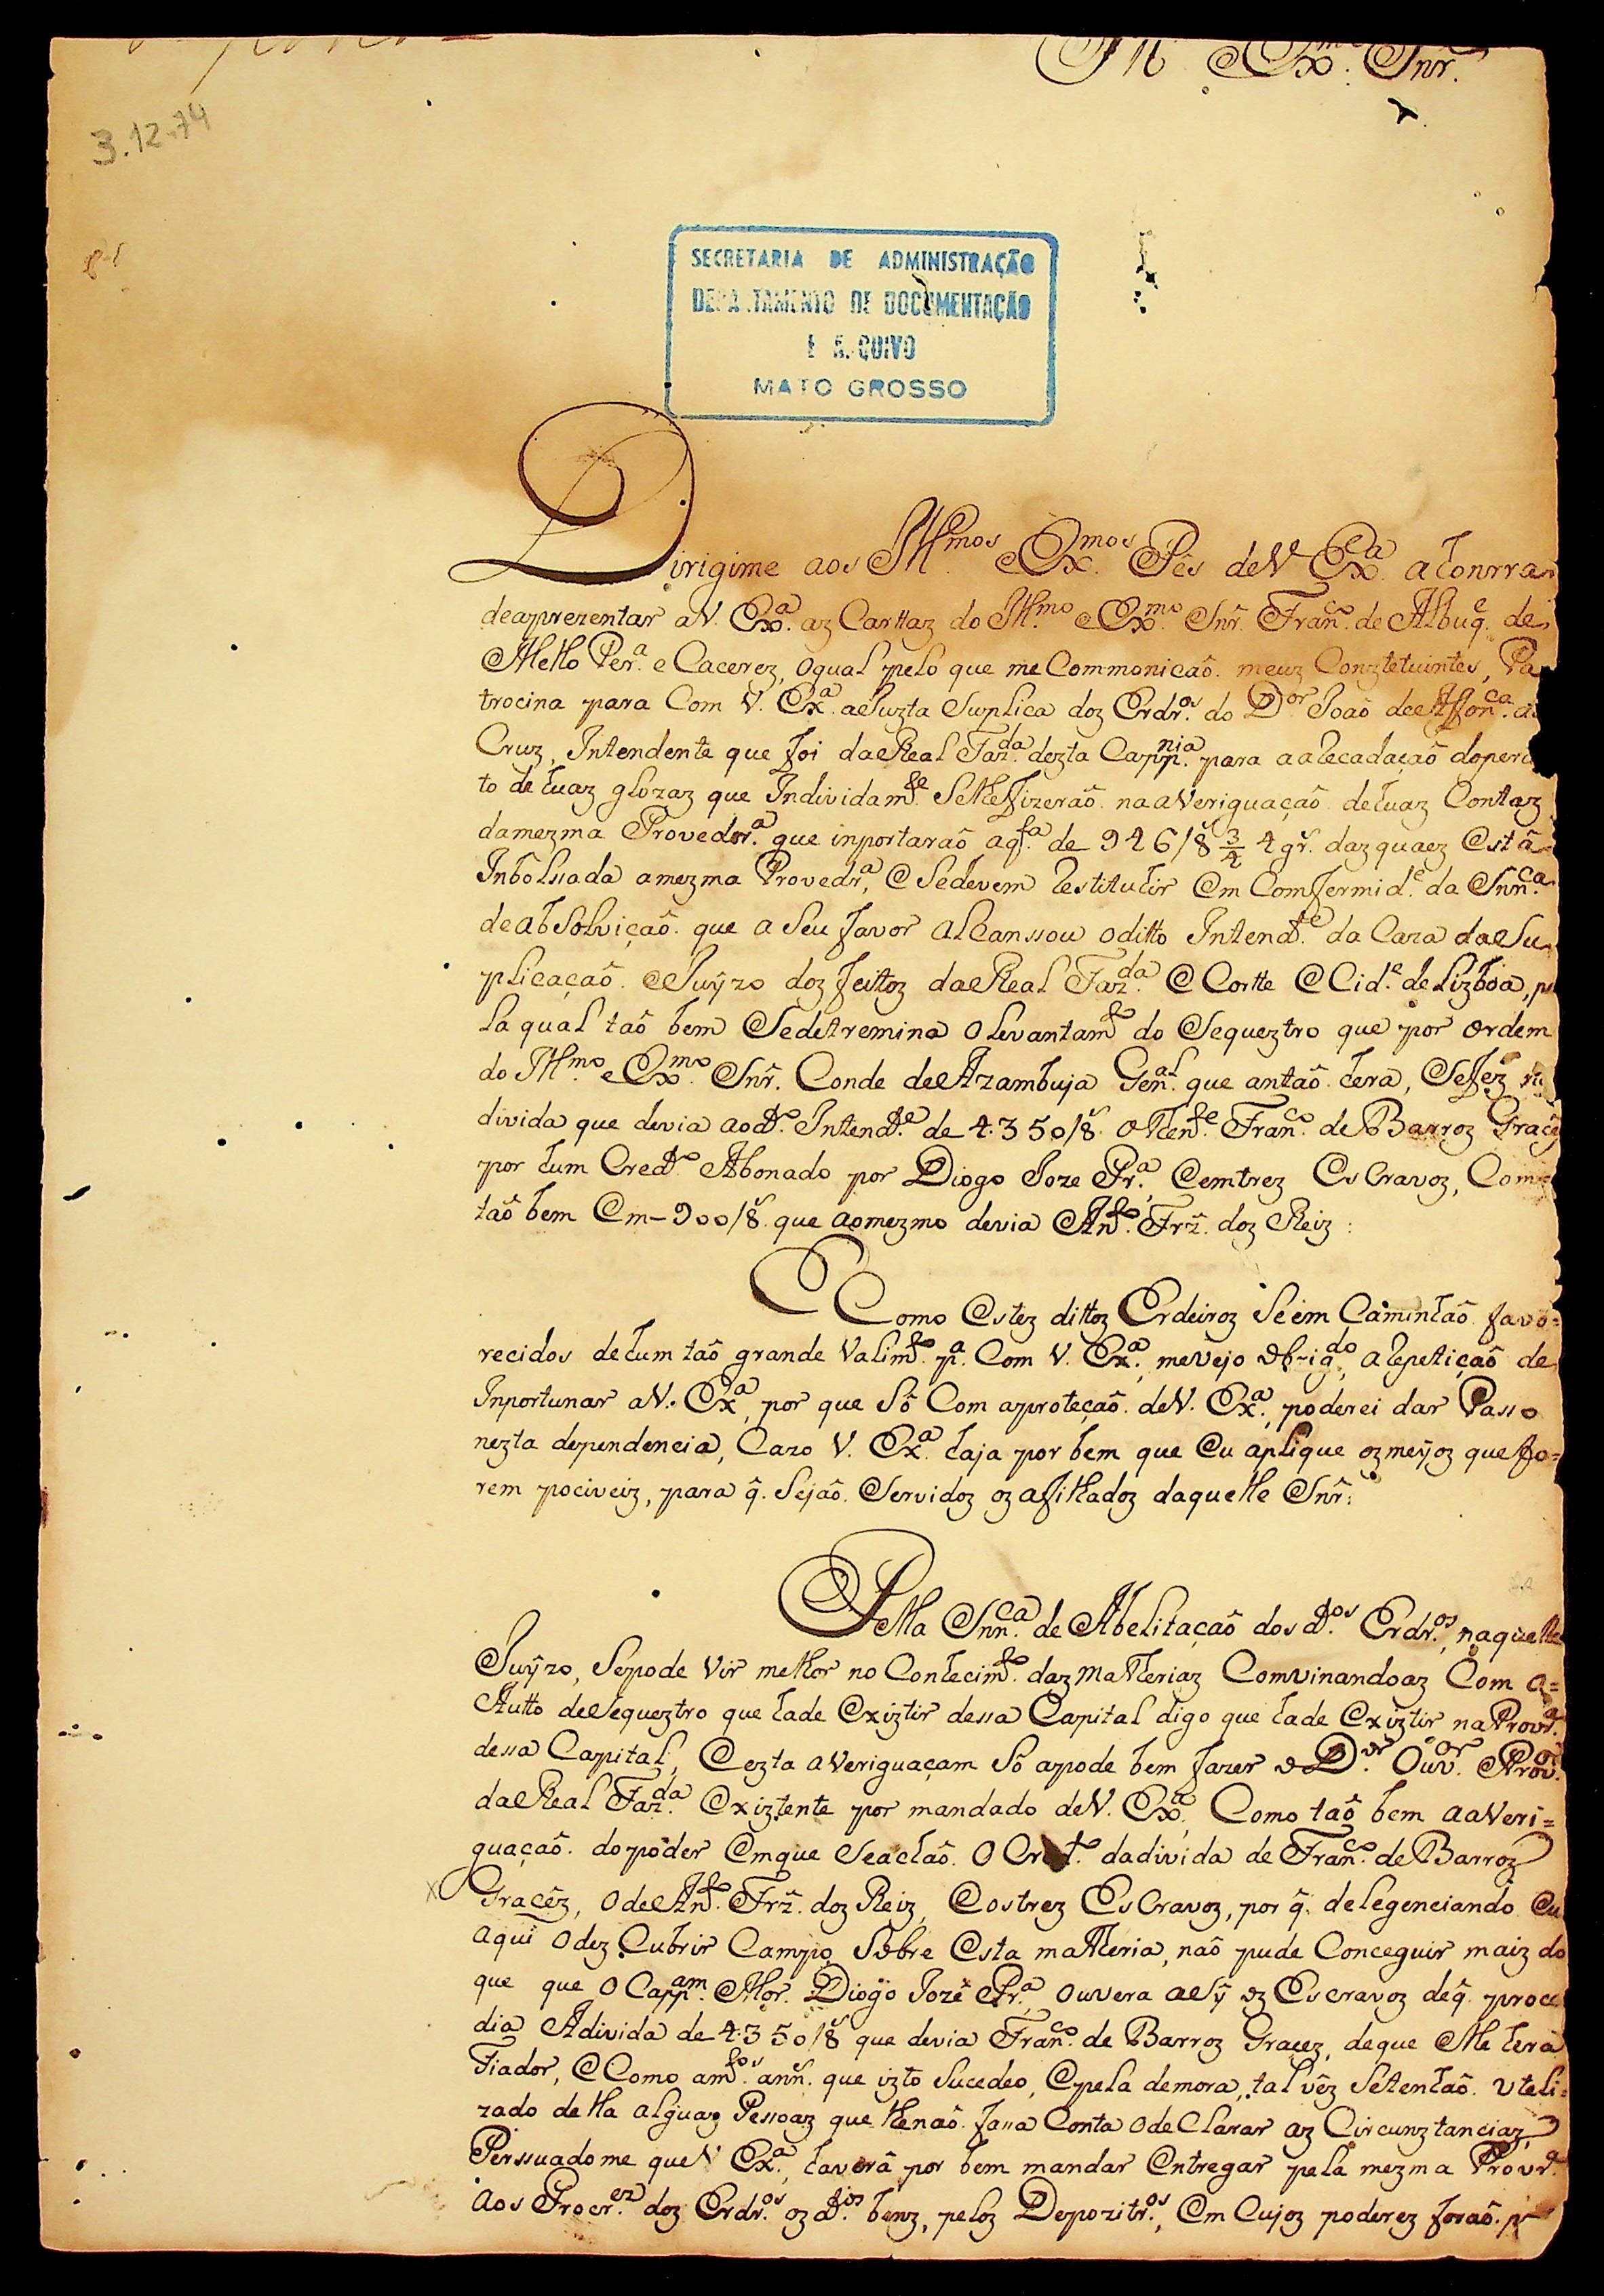 Ill.^mo Ex.^mo Snr.
3.12.74
SECRETARIA DE ADMINISTRAÇÃO
DEPARTAMENTO DE DOCUMENTAÇÃO
E ARQUIVO
MATO GROSSO
Dirigime aos Ill.^mos Ex.^mos Pés de V.^e Ex.^ca a honrra
deaprezentar aV. Ex.^a az Carttaz do Ill.^mo e Ex.^mo Snr. Fran.^co de Albuq.^e de
Mello Per.^a e Cacerez, oqual pelo que me Commonicaõ. meuz Conztetuintes, Pa
trocina para Com V. Ex.^a aJuzta Suplica doz Erdr.^os do D.^or Joaõ de Affon.^ca a
Cruz, Intendente que foi daReal Faz.^da dezta Capp.^nia para aaRecadaçaõ doperci
to de huaz glozaz que Individam.^te Selhefizeraõ. naaveriguaçaõ. dehuaz Contaz
damezma Provedor.^a que inportaraõ aq.^ta de 946/8^s 3/4 4 gr.^s dazquaez Está
Inbolssada amezma Provedr.^a, e Sedevem Restituhir Em Comfermid.^e da Snn.^ca
deabsolviçaõ. que a Seu favor alcanssou oditto Intend.^te da Caza da Su
plicaçaõ. eJuÿzo doz feittoz daReal Faz.^da e Cortte e Cid.^e de Lizboa, pe
la qual taõ bem Sedetremina olevantam.^to do Sequeztro que por ordem
do Ill.^mo e Ex.^mo Snr. Conde deAzambuja Gen.^al que antaõ. hera, Sefez na
divida que devia aod.^to Intend.^te de 4:350/8^s o Then.^te Fran.^co de Barroz Gracez
por hum Cred.^to Abonado por Diogo Joze Pr.^a, Eemtrez EsCravoz, Como
taõ bem Em-900/8^s que aomezmo devia Ant.^o Frz. doz Reiz:
Como Estez dittoz Erdeiroz Seem Caminhaõ favo=
recidos dehum taõ grande Valim.^to p.^a Com V. Ex.^a, mevejo obrig.^do, aRepetiçaõ de
Inportunar aV. Ex.^a, por que Só Com aproteçaõ. deV. Ex.^a, poderei dar Passo
nezta dependencia, Cazo V. Ex.^a haja por bem que Eu aplique ozmeÿoz que fo=
rem pociveiz, para q̃. Sejaõ. Servidoz oz afilhadoz daquelle Snr:
Pella Snn.^ca de Abelitaçaõ dos d.^tos Erdr.^os, naquelle
Juÿzo, Sepode Vir melhor no Conhecim.^to dazmatheriaz Comvinandoaz Com a=
Autto deSequeztro que hade Exiztir dessa Capital digo que hade Exiztir naProvd.^a
dessa Capital, Eezta averiguaçam Só apode bem fazer o D.^or Ouv.^or Prov.^or
daReal Faz.^da Exiztente por mandado deV. Ex.^a, Como taõ bem aaveri=
guaçaõ. dopoder Emque Seachaõ. O Cred.^to. dadivida de Fran.^co de Barroz
Gracez, odeAnt.^o Frz. doz Reiz, Eostrez EsCravoz, por q̃. delegenciando Eu
aqui odez Cubrir Campo, Sobre Esta matheria, naõ pude Conceguir maiz do
que que O Capp.^am Mor. Diogo Jozé Pr.^a ouvera aSÿ oz Escravoz deq̃. proce
dia Adivida de 4:350/8^s que devia Fran.^co de Barroz Gracez, deque Elle hera
Fiador, EComo am.^tos ann.^s que izto Sucedeo, Epela demora, talvez Setenhaõ. Uteli=
zado della alguaz Pessoaz que lhenaõ. fassa Conta odeClarar az Circunztanciaz,
Perssuadome queV Ex.^a, haverá por bem mandar Entregar pela mezma Provd.^a
aos Procr.^ez doz Erdr.^os oz d.^tos benz, peloz Depozitr.^os, Em Cujoz poderez foraõ. p